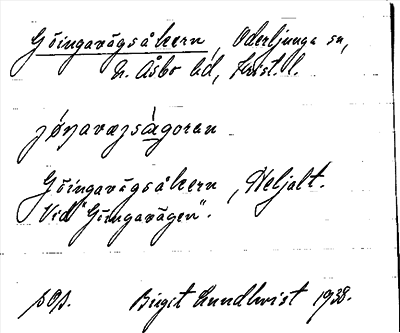 Göingavägsåkern, Oderljunga sn,
N. Åsbo hd, Krist. l.
jöŋavæjsàgoran
Göingavägsåkern, Heljalt.
Vid "Göingavägen".
sOs. Birgit Lundkvist 1938.